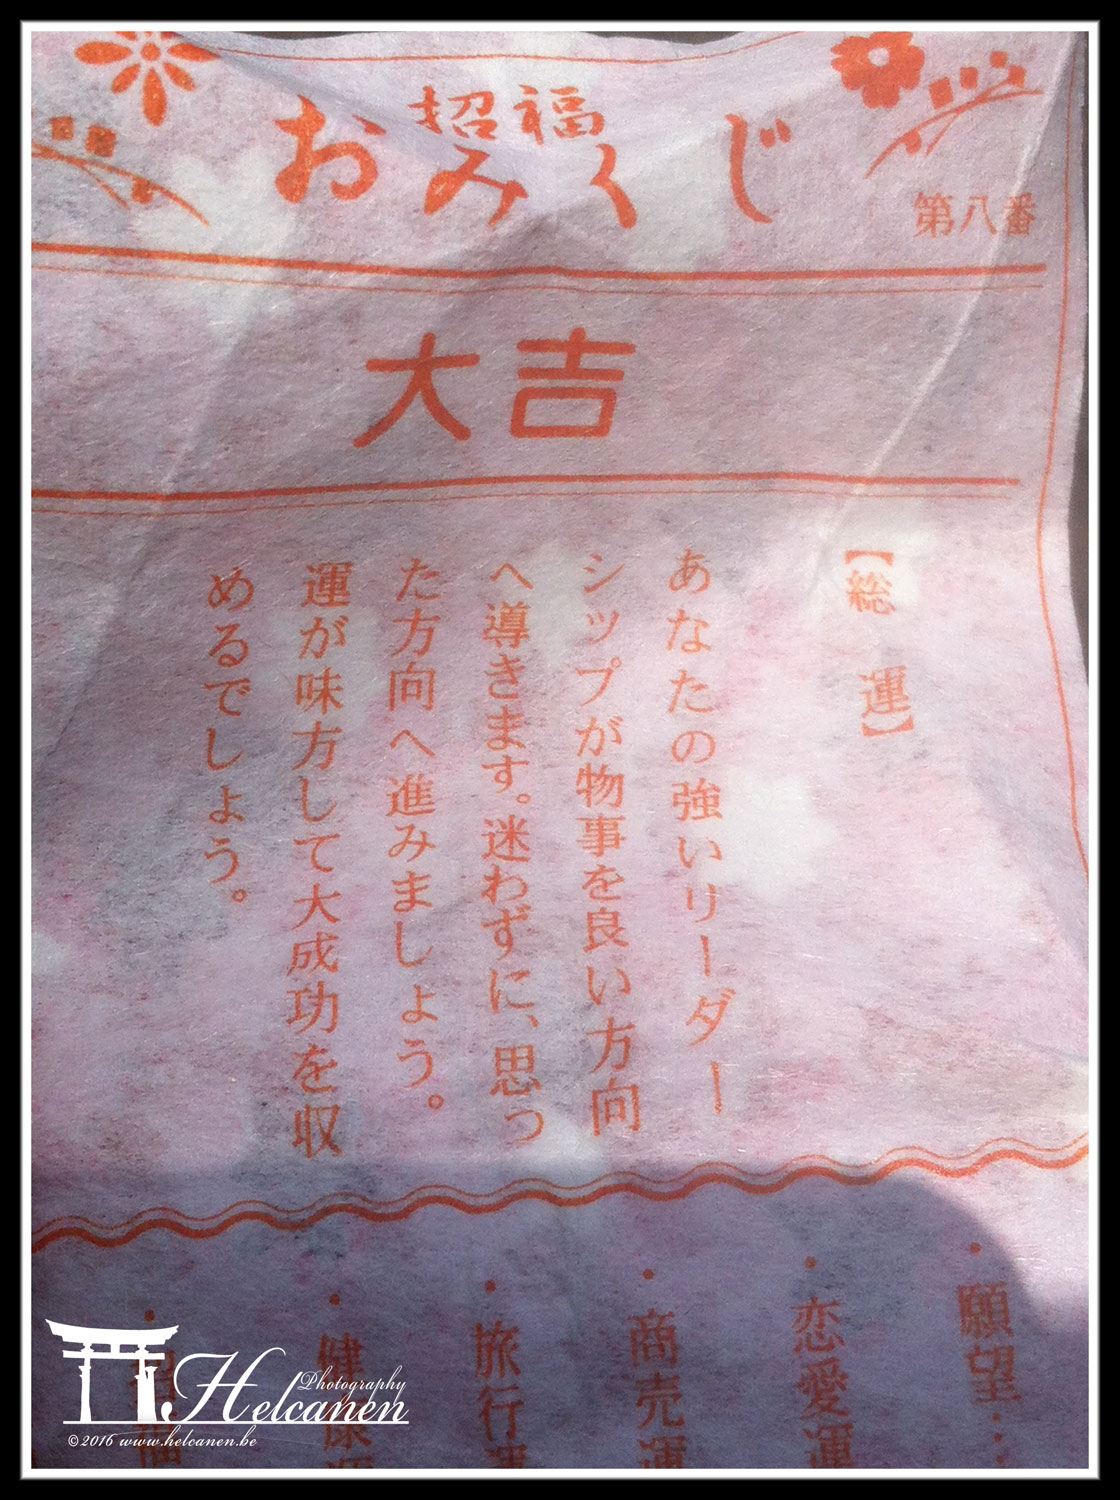 招福
おみくじ
第八番
大吉
【総 運】
あなたの強いリーダー
シップが物事を良い方向
へ導きます。迷わずに、思っ
た方向へ進みましょう。
運が味方して大成功を収
めるでしょう。
・願望…
・恋愛運
・商売運
・旅行運
・健康運
Photography
Helcanen
©2016 www.helcanen.be